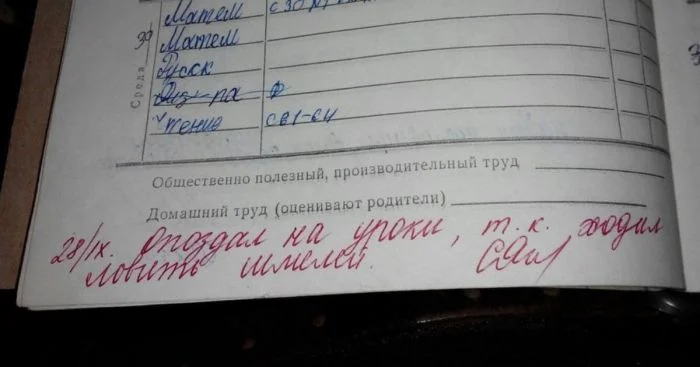 Матем
Среда 30 Матем
Русск
Физ-ра Ф
Чтение с61-64
Общественно полезный, производительный труд
Домашний труд (оценивают родители)
28/IX. Опоздал на уроки, т.к. ходил
ловить шмелей.